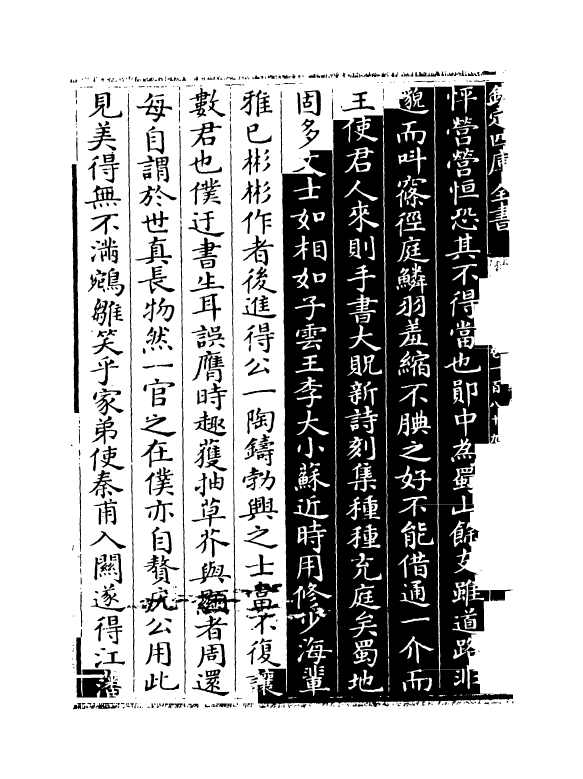 欽定四庫全書
怦營營恒恐其不得當也鄖中為蜀山餘支雖道路非
邈而叫窱徑庭鱗羽羞縮不腆之好不能借通一介而
王使君人來則手書大貺新詩刻集種種充庭矣蜀地
固多文士如相如子雲王李大小蘇近時用修少海輩
雅已彬彬作者後進得公一陶鑄勃興之士當不復讓
數君也僕迂書生耳誤膺時趣獲抽草芥與顯者周還
每自謂於世真長物然一官之在僕亦自贅疣公用此
見美得無不滿鵷雛笑乎家弟使秦甫入關遂得江藩